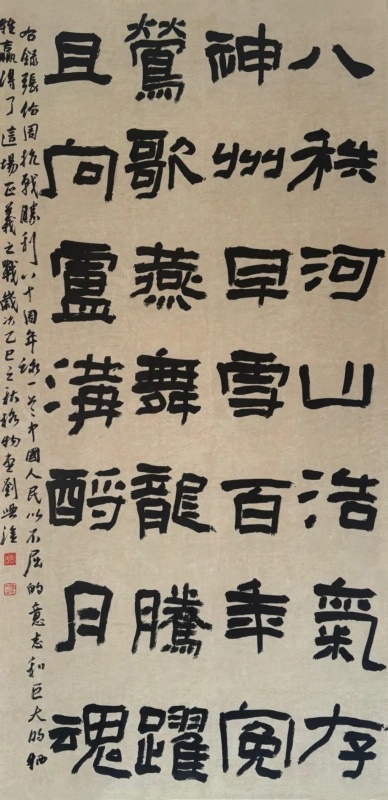 八秩河山浩氣存
神州早雪百年冤
鶯歌燕舞龍騰躍
且向盧溝酹月魂
右錄張伯周抗戰勝利八十周年詠一首中國人民以不屈的意志和巨大的犧
牲贏得了這場正義之戰歲次乙巳之秋 劉